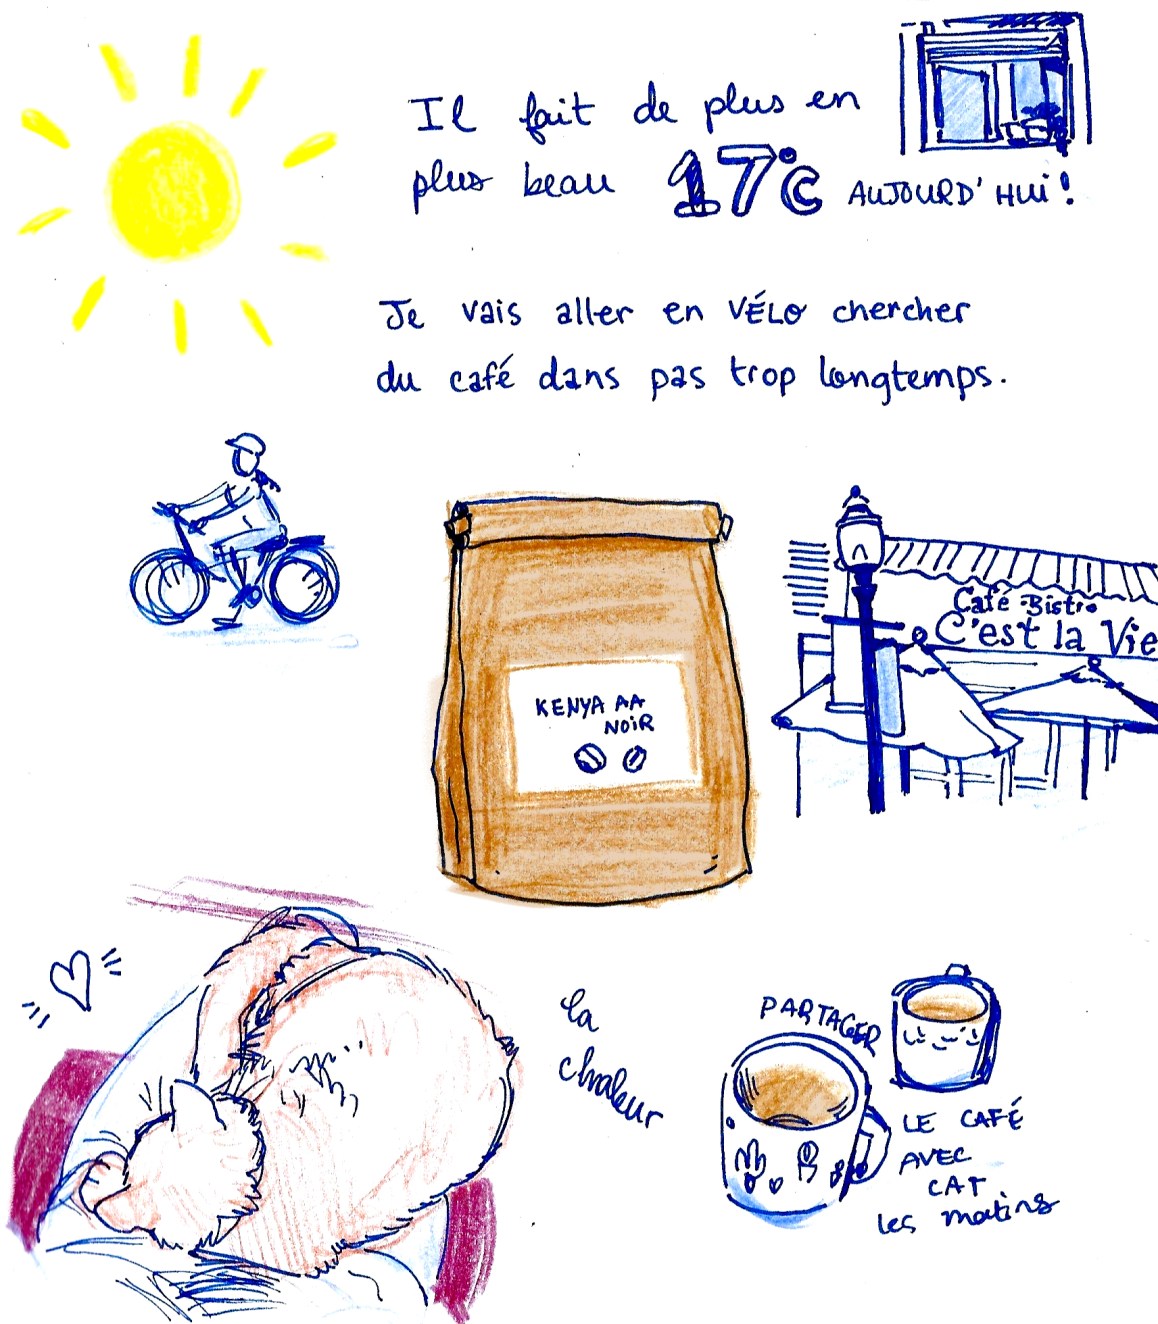 Il fait de plus en
plus beau 17°C AUJOURD'HUi!
Je vais aller en VÉLO chercher
du café dans pas trop longtemps.
Café Bistro
C'est la Vie
KENYA AA
NOiR
la
chaleur
PARTAGER
LE CAFÉ
AVEC
CAT
les matins